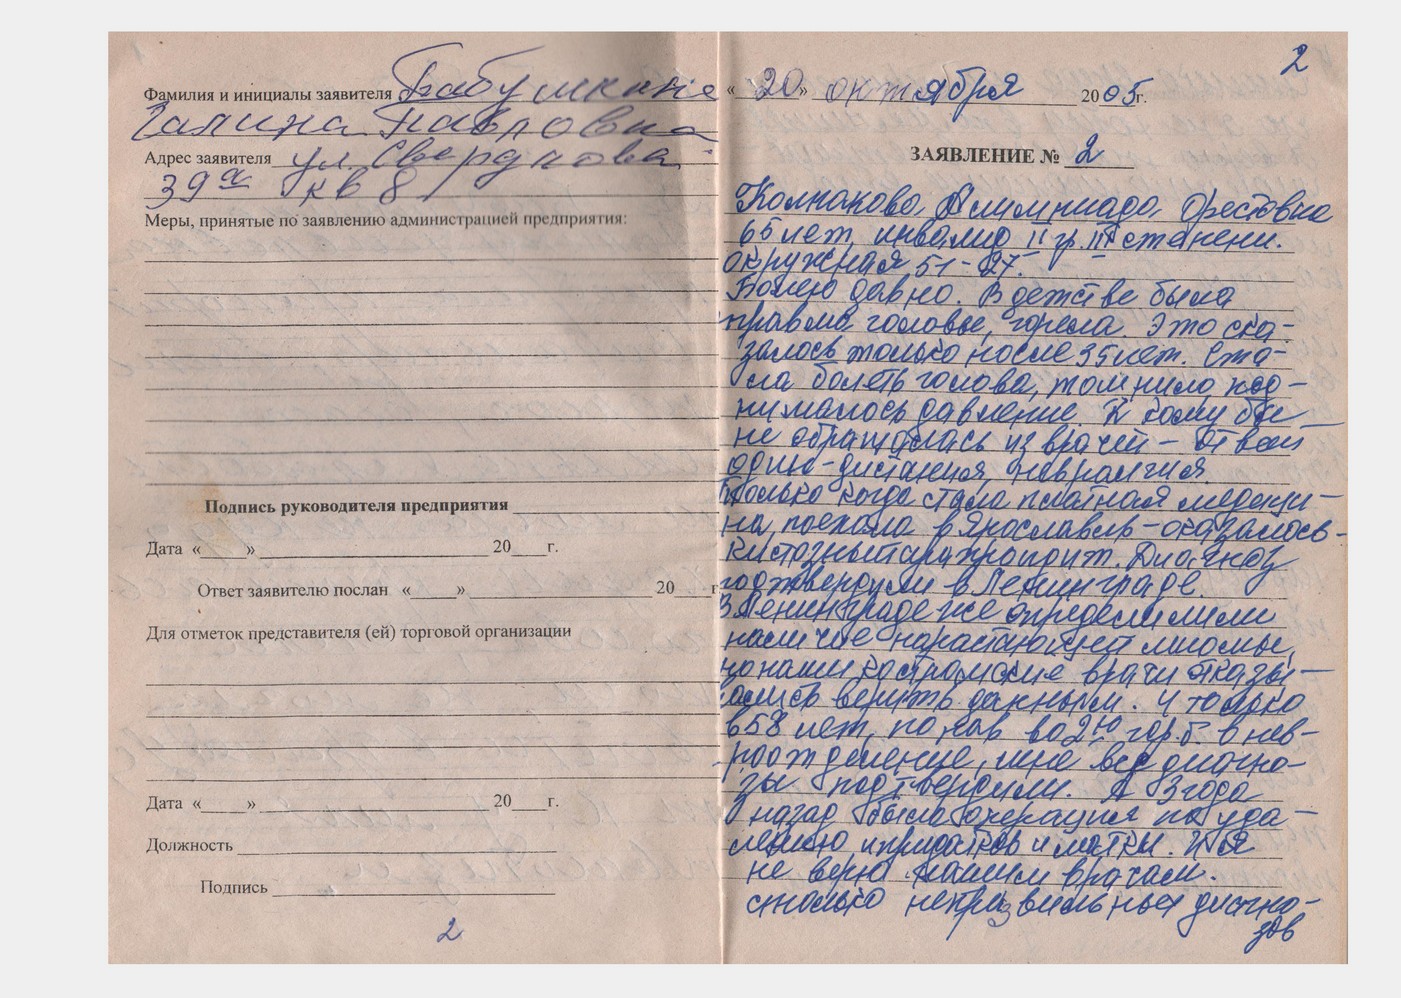 Фамилия и инициалы заявителя Бабушкина
Галина Павловна
Адрес заявителя ул. Свердлова
39а кв 8
Меры, принятые по заявлению администрацией предприятия:
Подпись руководителя предприятия
Дата «____» ____ 20____г.
Ответ заявителю послан «____» ____ 20____г.
Для отметок представителя (ей) торговой организации
Дата «____» ____ 20____г.
Должность
Подпись
2
2
«20» октября 2005г.
ЗАЯВЛЕНИЕ № 2
Колпакова Олимпиада Орестовна
65 лет, инвалид II гр. III степени.
окружная 51-27.
Болею давно. В детстве была
травма головы, горела. Это ска-
залось только после 35 лет. Ста-
ла болеть голова, томнило под-
нималось давление. К кому бы
не обращалась из врачей – ответ
один – дистания, невралгия.
Только когда стала платная медеци-
на, поехала в Ярославль – оказалось –
кистозный арахноидит. Диагноз
подтвердили в Ленинграде.
В Ленинграде же определили
наличие нарастающей миомы,
но наши костромские врачи отказы-
вались верить данным. И только
в 58 лет, попав во 2ю гор.б. в нев-
роотделение, мне все диагно-
зы подтвердили. А 3 года
назад была операция по уда-
лению придатков и матки. И я
не верю нашим врачам.
столько неправильных диагно-
зов